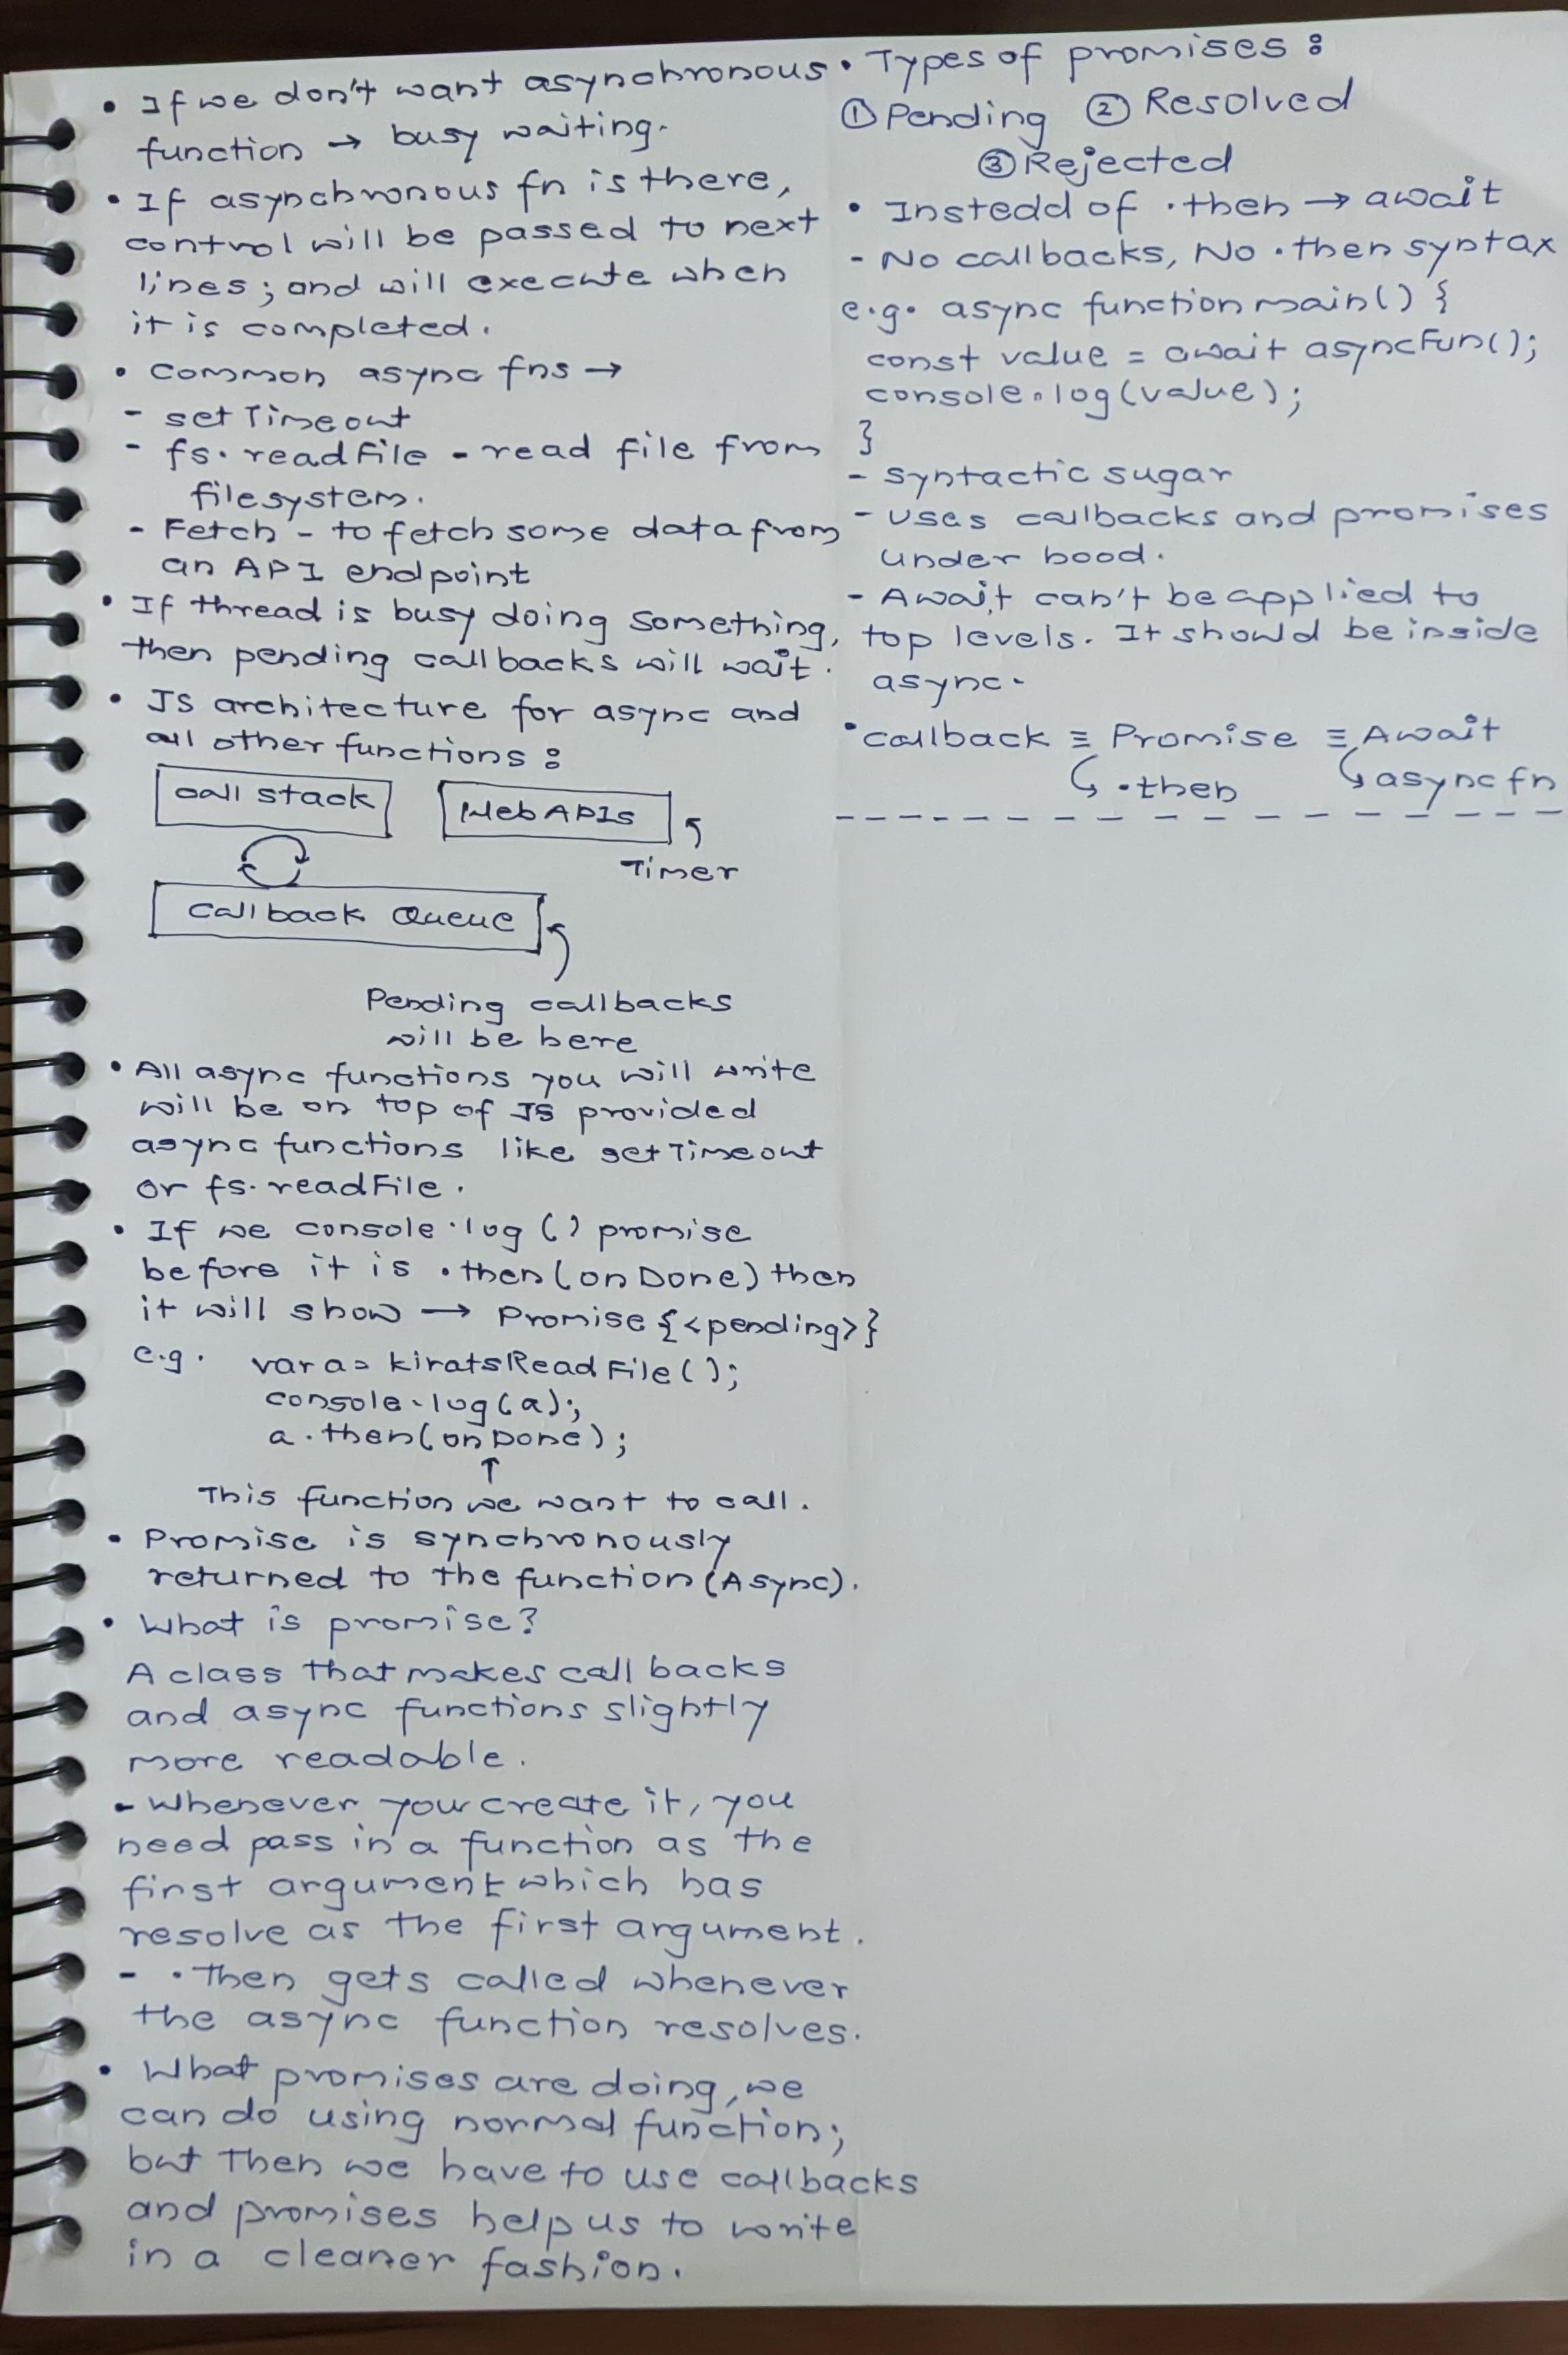 • If we don't want asynchronous
function → busy waiting.
• If asynchronous fn is there,
control will be passed to next
lines; and will execute when
it is completed.
• Common async fns →
- setTimeout
- fs.readFile - read file from
filesystem.
- Fetch - to fetch some data from
an API endpoint
• If thread is busy doing something,
then pending callbacks will wait.
• JS architecture for async and
all other functions :
Call stack
Web APIs
Timer
Callback Queue
Pending callbacks
will be here
• All async functions you will write
will be on top of JS provided
async functions like setTimeout
or fs.readFile.
• If we console.log() promise
before it is .then(onDone) then
it will show → Promise {<pending>}
e.g. var a = kiratsReadFile();
console.log(a);
a.then(onDone);
↑
This function we want to call.
• Promise is synchronously
returned to the function (Async).
• What is promise?
A class that makes callbacks
and async functions slightly
more readable.
- Whenever your create it, you
need pass in a function as the
first argument which has
resolve as the first argument.
- .Then gets called whenever
the async function resolves.
• What promises are doing, we
can do using normal function;
but then we have to use callbacks
and promises help us to write
in a cleaner fashion.
• Types of promises :
① Pending ② Resolved
③ Rejected
• Instedd of .then → await
- No callbacks, No .then syntax
e.g. async function main() {
const value = await asyncFun();
console.log(value);
}
- syntactic sugar
- uses callbacks and promises
under hood.
- Await can't be applied to
top levels. It should be inside
async.
• callback ≡ Promise ≡ Await
↳ .then ↳ async fn